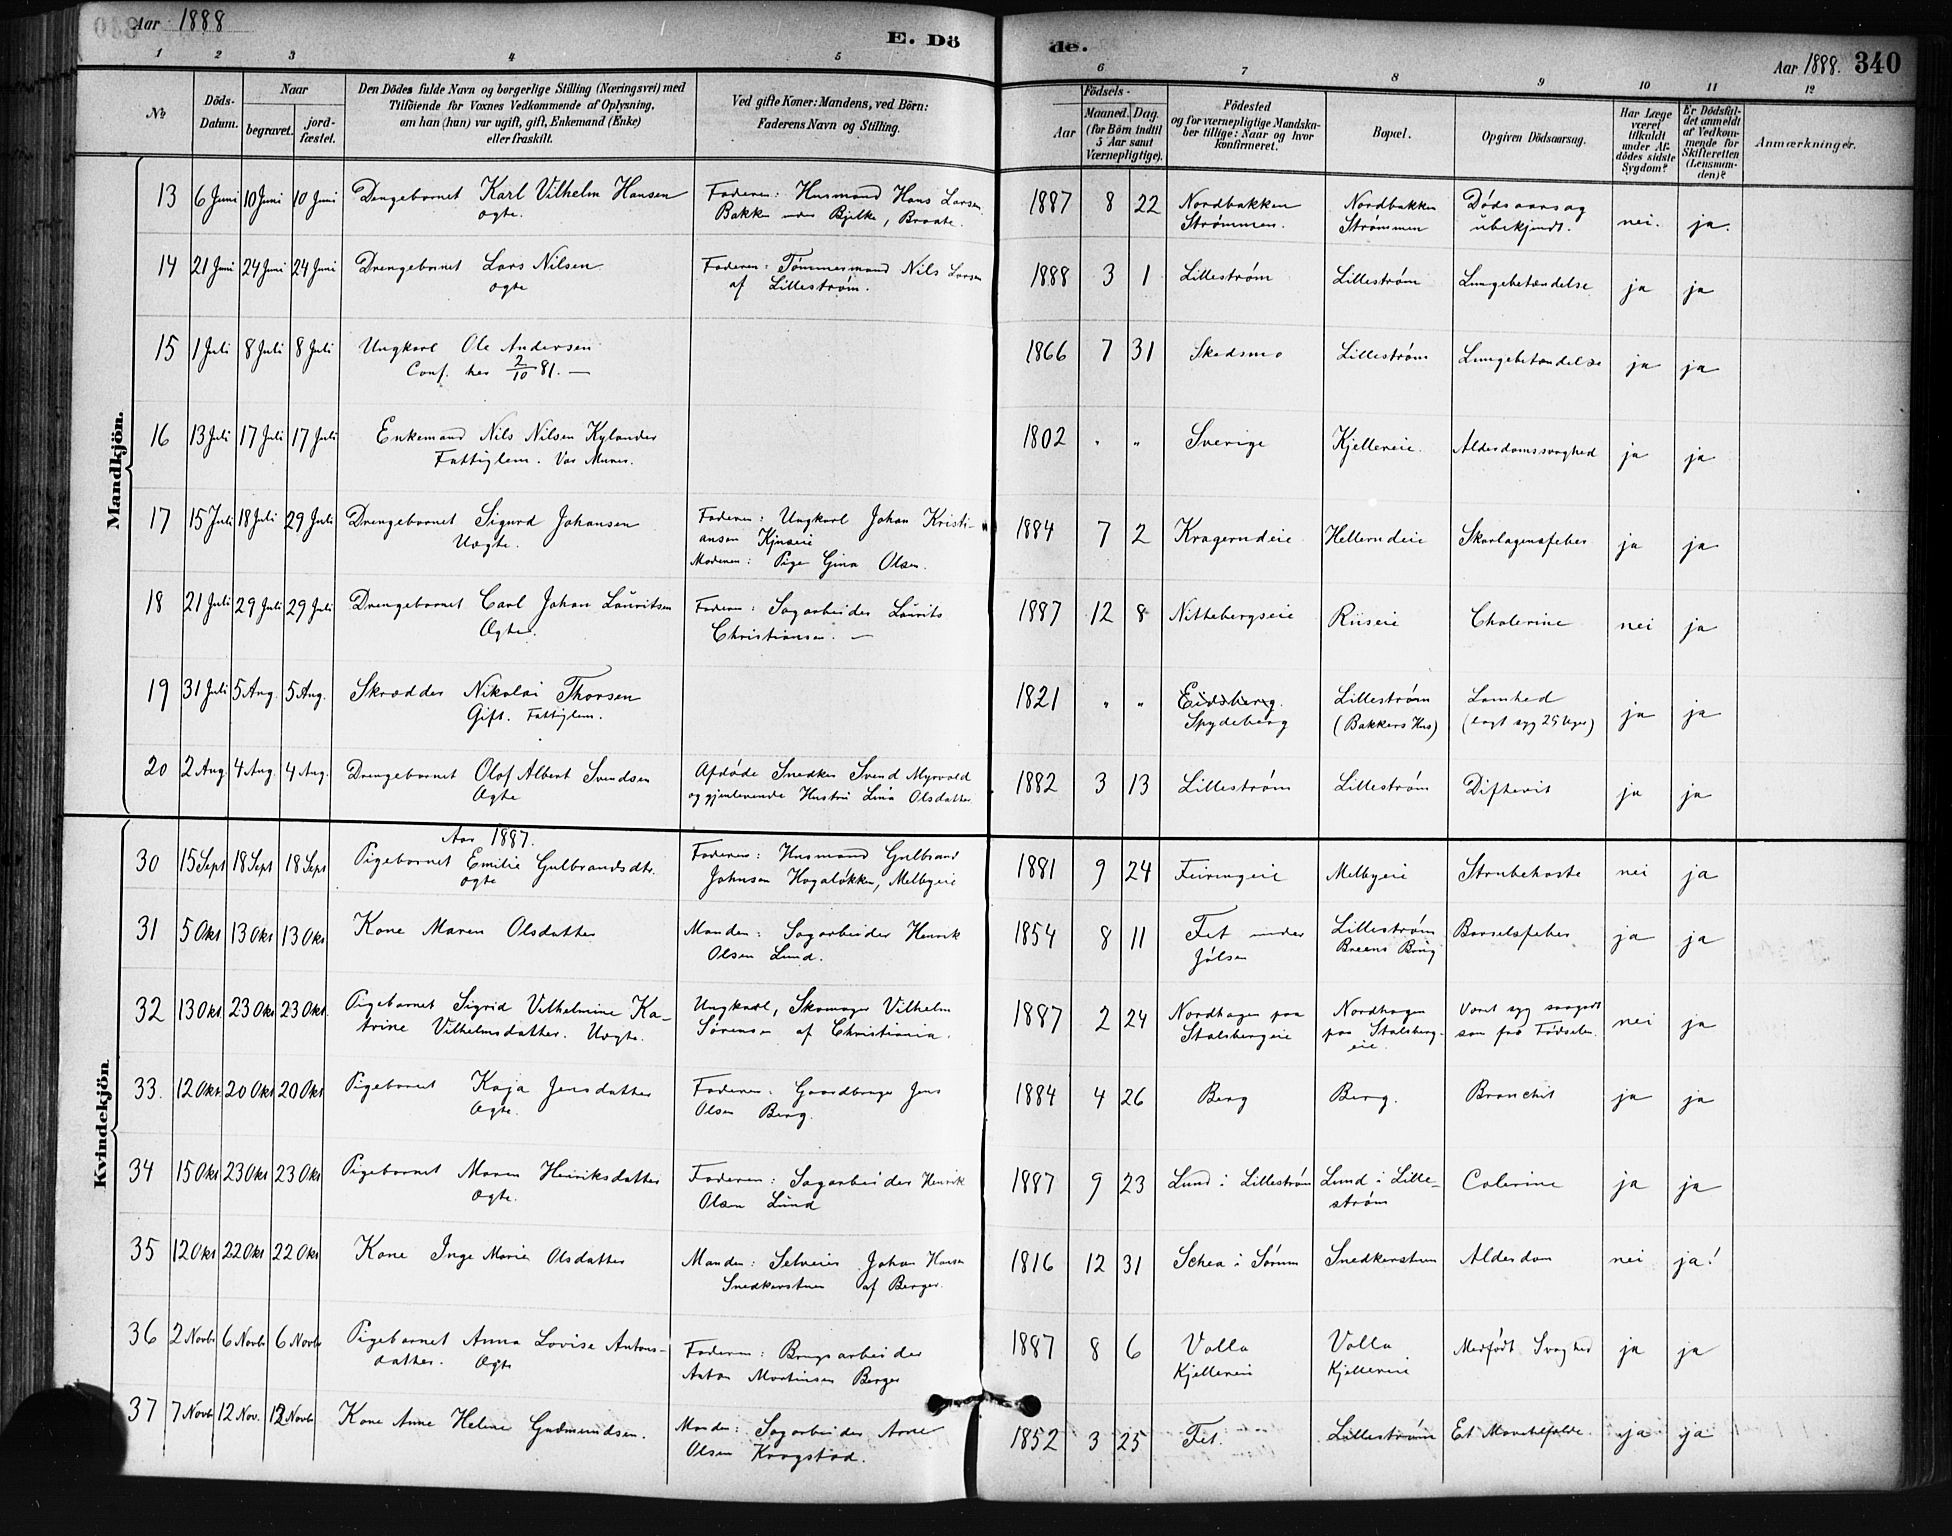 Aar 1888
E. Dö
de.
Aar 1888. 340
1 2 3 4 5 6 7 8 9 10 11 12
№
Döds-
Datum.
Naar
begravet.
jord-
fæstet.
Den Dödes fulde Navn og borgerlige Stilling (Næringsvei) med
Tilföiende for Voxnes Vedkommende af Oplysning,
om han (hun) var ugift, gift, Enkemand (Enke)
eller fraskilt.
Ved gifte Koner: Mandens, ved Börn:
Faderens Navn og Stilling.
Födsels-
Aar
Maaned.
Dag.
(for Börn indtil
5 Aar samt
Værnepligtige).
Födested
og for værnepligtige Mandska-
ber tillige: Naar og hvor
konfirmeret.
Bopæl.
Opgiven Dödsaarsag.
Har Læge
været
tilkaldt
under Af-
dödes sidste
Sygdom?
Er Dödsfal-
det anmeldt
af Vedkom-
mende for
Skifteretten
(Lensman-
den)?
Anmærkninger.
Mandkjön.
13 6 Juni 10 Juni 10 Juni Drengebarnet Karl Vilhelm Hansen Faderen: Husmand Hans Larsen 1887 8 22 Nordbakken Nordbakken Dødsaarsag nei. ja.
ægte. Bakken under Bjelke, Braate. Strømmen. Strømmen ubekjendt.
14 21 Juni 24 Juni 24 Juni Drengebarnet Lars Nilsen Faderen: Tømmermand Nils Larsen 1888 3 1 Lillestrøm Lillestrøm Lungebetændelse ja ja
ægte af Lillestrøm.
15 1 Juli 8 Juli 8 Juli Ungkarl Ole Andersen 1866 7 31 Skedsmo Lillestrøm Lungebetændelse ja ja
Conf. her 2/10 81. —
16 13 Juli 17 Juli 17 Juli Enkemand Nils Nilsen Kylander 1802 " " Sverige Kjellereie. Alderdomssvaghed ja ja
Fattiglem. Var Murer.
17 15 Juli 18 Juli 29 Juli Drengebarnet Sigurd Johansen Faderen: Ungkarl Johan Kristi- 1884 7 2 Kragerudeie Hellerudeie Skarlagensfeber ja ja
Uægte. ansen
Moderen: Pige Gina Olsen.
18 21 Juli 29 Juli 29 Juli Drengebarnet Carl Johan Lauritsen Faderen: Sagarbeider Laurits 1887 12 8 Nittebergseie Riiseie Cholerine nei ja
Ægte. Christiansen. —
19 31 Juli 5 Aug. 5 Aug. Skrædder Nikolai Thorsen 1821 " " Eidsberg. Lillestrøm Lamhed ja ja
Gift. Fattiglem. Spydeberg (Bakkers Hus) (lagt syg 25 Uger)
20 2 Aug. 4 Aug. 4 Aug. Drengebarnet Olof Albert Svendsen Afdøde Snedker Svend Myrvold 1882 3 13 Lillestrøm Lillestrøm Difterit ja ja
Ægte og gjenlevende Hustru Lina Olsdatter
Kvindekjön
Aar 1887.
30 15 Sept 18 Sept 18 Sept Pigebarnet Emilie Gulbrandsdtr. Faderen: Husmand Gulbrand 1881 9 24 Feiringeie Melbyeie Strubehoste nei ja
ægte Johnsen Hagaløkken, Melbyeie
31 5 Okt 13 Okt 13 Okt Kone Maren Olsdatter Manden: Sagarbeider Henrik 1854 8 11 Fet under Lillestrøm Barselsfeber ja ja
Olsen Lund. Jølsen Breens Brug
32 13 Okt 23 Okt 23 Okt Pigebarnet Sigrid Vilhelmine Ka- Ungkarl, Skomager Vilhelm 1887 2 24 Nordhagen paa Nordhagen Været syg saagodt nei ja
trine Vilhelmsdatter. Uægte. Sørensen af Christiania. Stalsbergeie paa Stalsberg- som fra Fødselen.
eie.
33. 12 Okt 20 Okt 20 Okt Pigebarnet Kaja Jensdatter Faderen: Gaardbruger Jens 1884 4 26 Berg Berg. Bronchit ja ja
Ægte. Olsen Berg.
34 15 Okt 23 Okt 23 Okt Pigebarnet Maren Henriksdatter Faderen: Sagarbeider Henrik 1887 9 23 Lund i Lillestrøm Lund i Lille- Colerine ja ja
ægte. Olsen Lund strøm
35 12 Okt 22 Okt 22 Okt Kone Inge Marie Olsdatter Manden: Selveier Johan Hansen 1816 12 31 Schea i Sørum Snedkerstuen Alderdom nei ja!
Snedkerstuen af Berger.
36 2 Novbr 6 Novbr 6 Novbr Pigebarnet Anna Lovise Antons- Faderen: Brugsarbeider 1887 8 6 Volla Volla Medfødt Svaghed ja ja
datter. Ægte Anton Martinsen Berger Kjellereie Kjellereie
37 7 Novbr 12 Nov. 12 Novbr Kone Anne Helene Gudmundsen. Manden: Sagarbeider Arne 1852 3 25 Fet. Lillestrøm Et Mavetilfælde. ja ja
Olsen Krogstad.